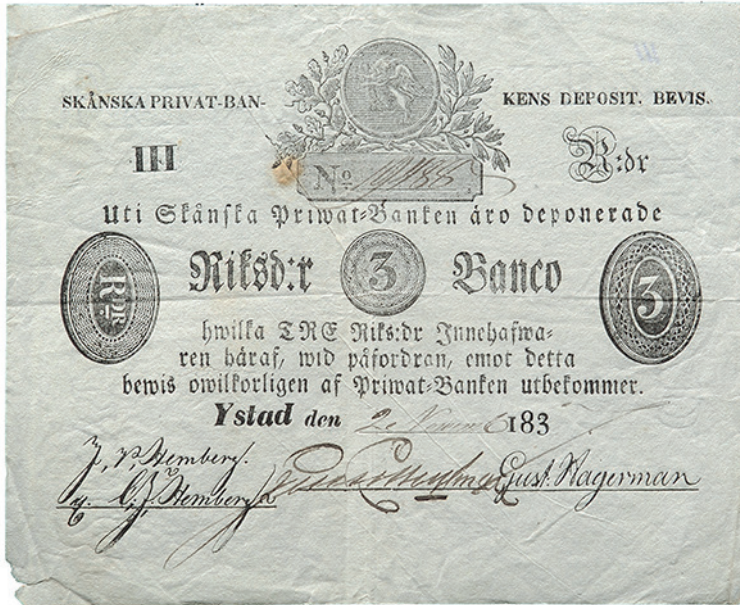 SKÅNSKA PRIVAT-BAN- KENS DEPOSIT. BEVIS.
III R:dr
No
Uti Skånska Priwat-Banken äro deponerade
RDR Riksd:r 3 Banco 3
hwilka TRE Riks:dr Innehafwa-
ren häraf, wid påfordran, emot detta
bewis owilkorligen af Priwat-Banken utbekommer.
Ystad den 2 183
J. P. Hemberg. Gust. Hagerman
C. J. Hemberg